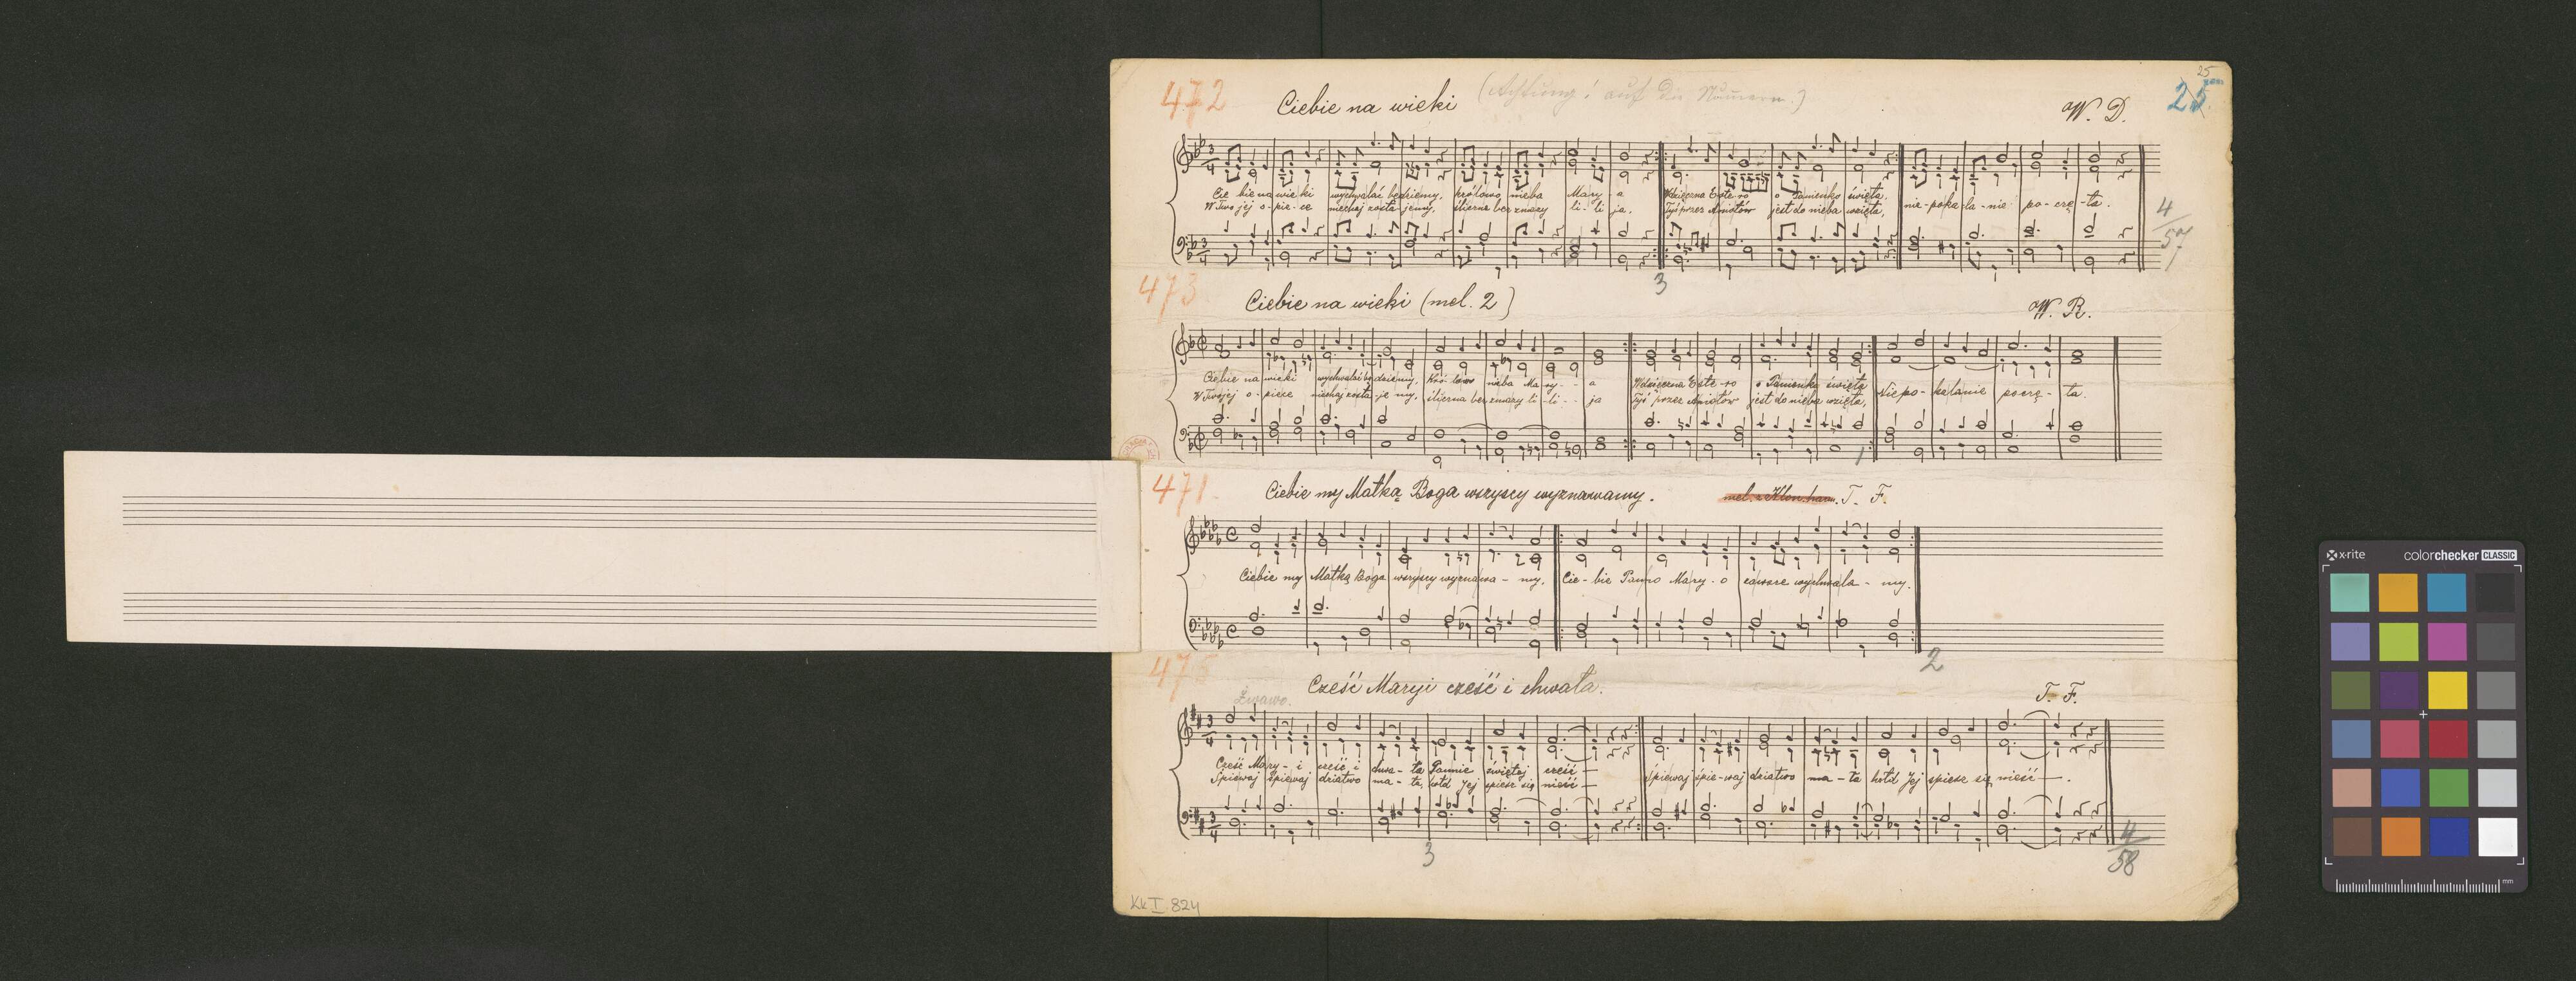 25
472 Ciebie na wieki (Achtung! auf die Numern.) W. D. 25
Cie bie na wie ki wychwalać będziemy, królowo nieba Mary a Wdzięczna Este-ro o Panienko święta, nie-poka-la-nie po-czę-ta.
W Two jej o-pie-ce niechaj zosta jemy, śliczna bez zmazy li-li ja, Tyś przez Aniołów jest do nieba wzięta,
4/57
3
473 Ciebie na wieki (mel. 2) W. R.
Ciebie na wieki wychwalać bę dziemy, Kró-lowo nieba Ma-ry- - a Wdzięczna Este-ro o Panienko święta Nie po-kalanie poczę-ta.
W Twojej o-piece niechaj zosta-je my, śliczna bez zmazy li-li- - ja Tyś przez Aniołów jest do nieba wzięta,
1
471 Ciebie my Matką Boga wszyscy wyznawamy. mel. z Klon. harm. T. F.
Ciebie my Matką Boga wszyscy wyznawa-my, Cie-bie Panno Mary-o zawsze wychwala-my.
2
475 Cześć Maryi cześć i chwała. T. F.
Żwawo.
Cześć Mary-i cześć i chwa-ła Pannie świętej cześć — Śpiewaj śpie-waj dziatwo ma-ła hołd Jej spiesz się nieść —.
Śpiewaj śpiewaj dziatwo ma-ła, hołd Jej spiesz się nieść —
3
4/58
Kk I 824
x-rite colorchecker CLASSIC
mm